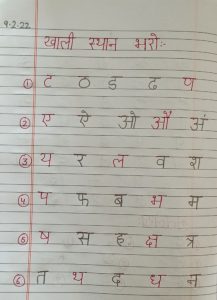 9-2-22
खाली स्थान भरो:-
① ट ठ ड ढ ण
② ए ऐ ओ औ अं
③ य र ल व श
④ प फ ब भ म
⑤ ष स ह क्ष त्र
⑥ त थ द ध न